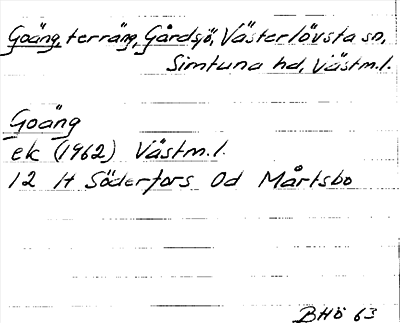 Goäng, terräng, Gårdsjö, Västerlövsta sn,
Simtuna hd, Västm.l.
Goäng
ek (1962) Västm.l.
12 H Söderfors 0d Mårtsbo
BHö 63